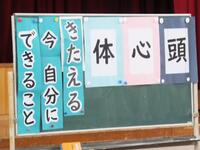 頭
心
体
きたえる
今 自分に
できること